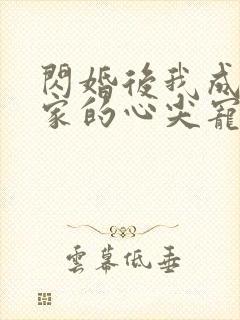 閃婚後我成
家的心尖寵
雲幕低垂